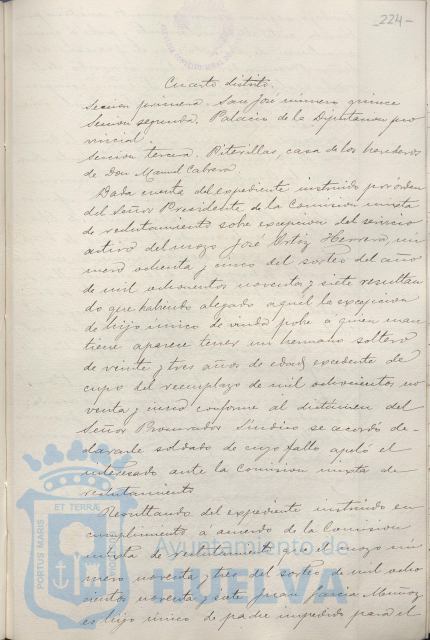 -224-
Cuarto distrito.
Seccion primera. San José número quince
Seccion segunda. Palacio de la Diputacion pro
vincial.
Seccion tercera. Riterillas, casa de los herederos
de Don Manuel Cabrera
Dada cuenta del expediente instruido por orden
del Señor Presidente de la Comision mixta
de reclutamiento sobre excepcion del servicio
activo del mozo José Ortiz Herrera nú
mero ochenta y cinco del sorteo del año
de mil ochocientos noventa y siete resultan
do que habiendo alegado aquel la excepcion
de hijo unico de viuda pobre a quien man
tiene aparece tener un hermano soltero
de veinte y tres años de edad, excedente de
cupo del reemplazo de mil ochocientos no
venta y cinco conforme al dictámen del
Señor Procurador Síndico se acordó de-
clararle soldado de cuyo fallo apeló el
interesado ante la Comision mixta de
reclutamiento
Resultando del expediente instruido en
cumplimiento á acuerdo de la Comision
mixta de reclutamiento que el mozo nú
mero noventa y tres del sorteo de mil ocho
cientos noventa y siete Juan Garcia Muñoz
es hijo único de padre impedido para el
PORTUS MARIS ET TERRAE
Ayuntamiento de
HUELVA